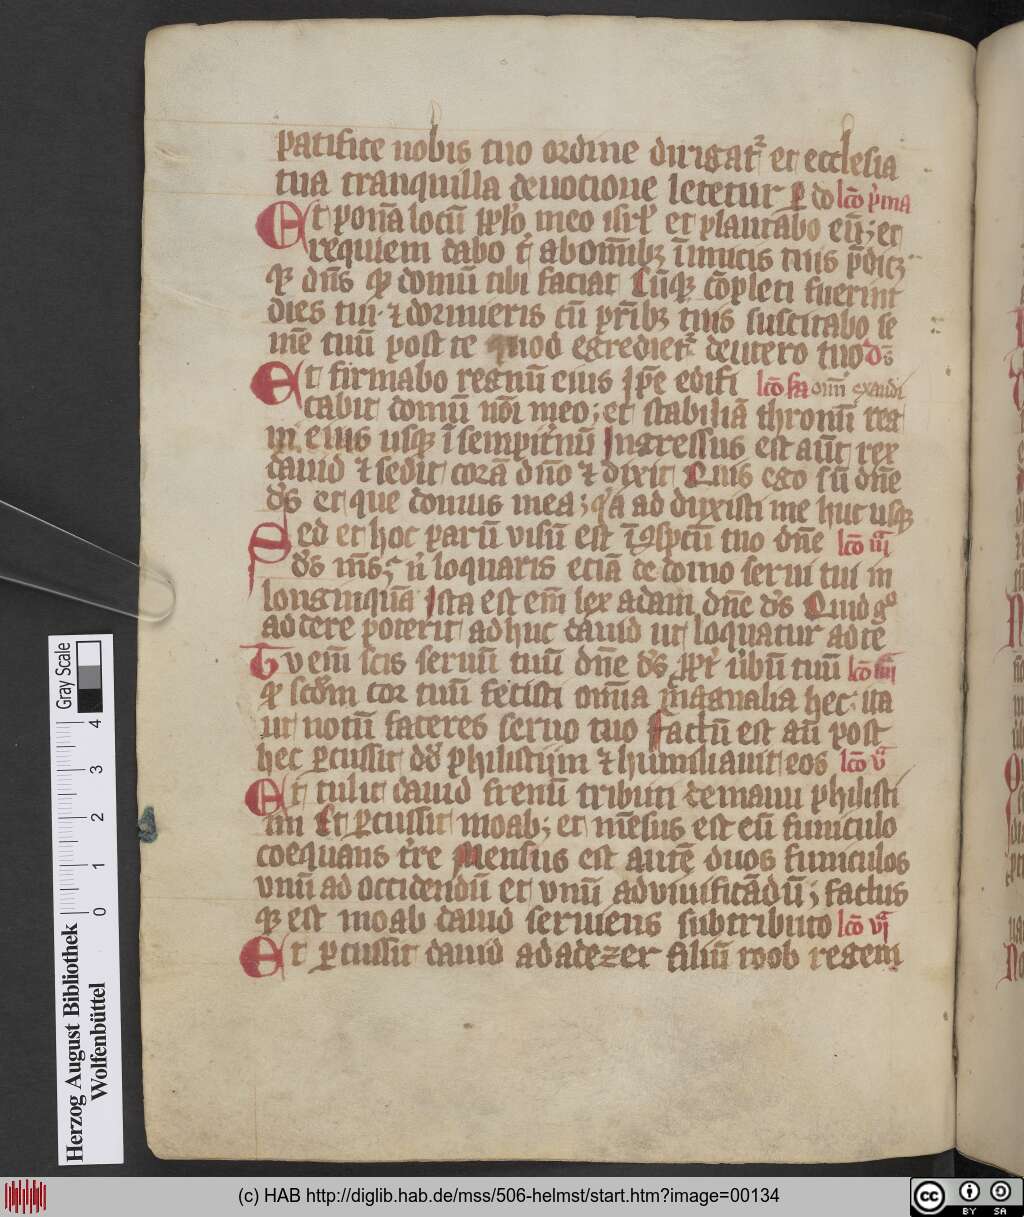 patifice nobis tuo ordine dirigat᷑ et ecclesia
tua tranquilla deuocione letetur ꝑ do lc̄o p̓ma
Et ponā locū pp̄lo meo isrl̓ et plantabo eū; et
requiem dabo t̓ ab om̄ibꝫ īimicis tuis p̄dicꝫ
qꝫ dn̄s qꝫ domū tibi faciat Cūqꝫ cōpleti fuerint
dies tui ⁊ dormieris cū pr̄ibꝫ tuis suscitabo se
mē tuū post te quod egrediet᷑ de utero tuo ds̄
Et firmabo regnū eius ip̄e edifi lc̄o sa om̄i exaudi
cabit domū nōi meo; et stabiliā thronū reg
ni eius usqꝫ ī sempit̓nū Ingressus est aūt rex
dauid ⁊ sedit corā dn̄o ⁊ dixit Quis ego sū dn̄e
ds̄ et que domus mea; q̓a adduxisti me huc usqꝫ
Sed et hoc parū visū est ī ꝯspctū tuo dn̄e lc̄o iij
ds̄ m̄s; n̓ loquaris eciā de domo serui tui in
longinquū Ista est em̄ lex adam dn̄e ds̄ Quid gͦ
addere poterit adhuc dauid ut loquatur ad te
Tu em̄ scis seruū tuū dn̄e ds̄ ꝓpt̓ u̓bū tuū lc̄o iiij
qꝫ scdm̄ cor tuū fecisti om̄ia magnalia hec ita
ut notū faceres seruo tuo Factū est aū post
hec ꝑcussit dd̄ philistijm ⁊ humiliauit eos lc̄o v
Et tulit dauid frenū tributi de manu philisti
im Et ꝑcussit moab; et mēsus est eū funiculo
coequans t̓re Mensus est autē duos funiculos
vnū ad occidendū et vnū ad viuificādū; factus
qꝫ est moab dauid seruiens sub tributo lc̄o vj
Et ꝑcussit dauid adadezer filiū roob regem
Herzog August Bibliothek
Wolfenbüttel
Gray Scale
0 1 2 3 4
(c) HAB http://diglib.hab.de/mss/506-helmst/start.htm?image=00134
cc BY SA